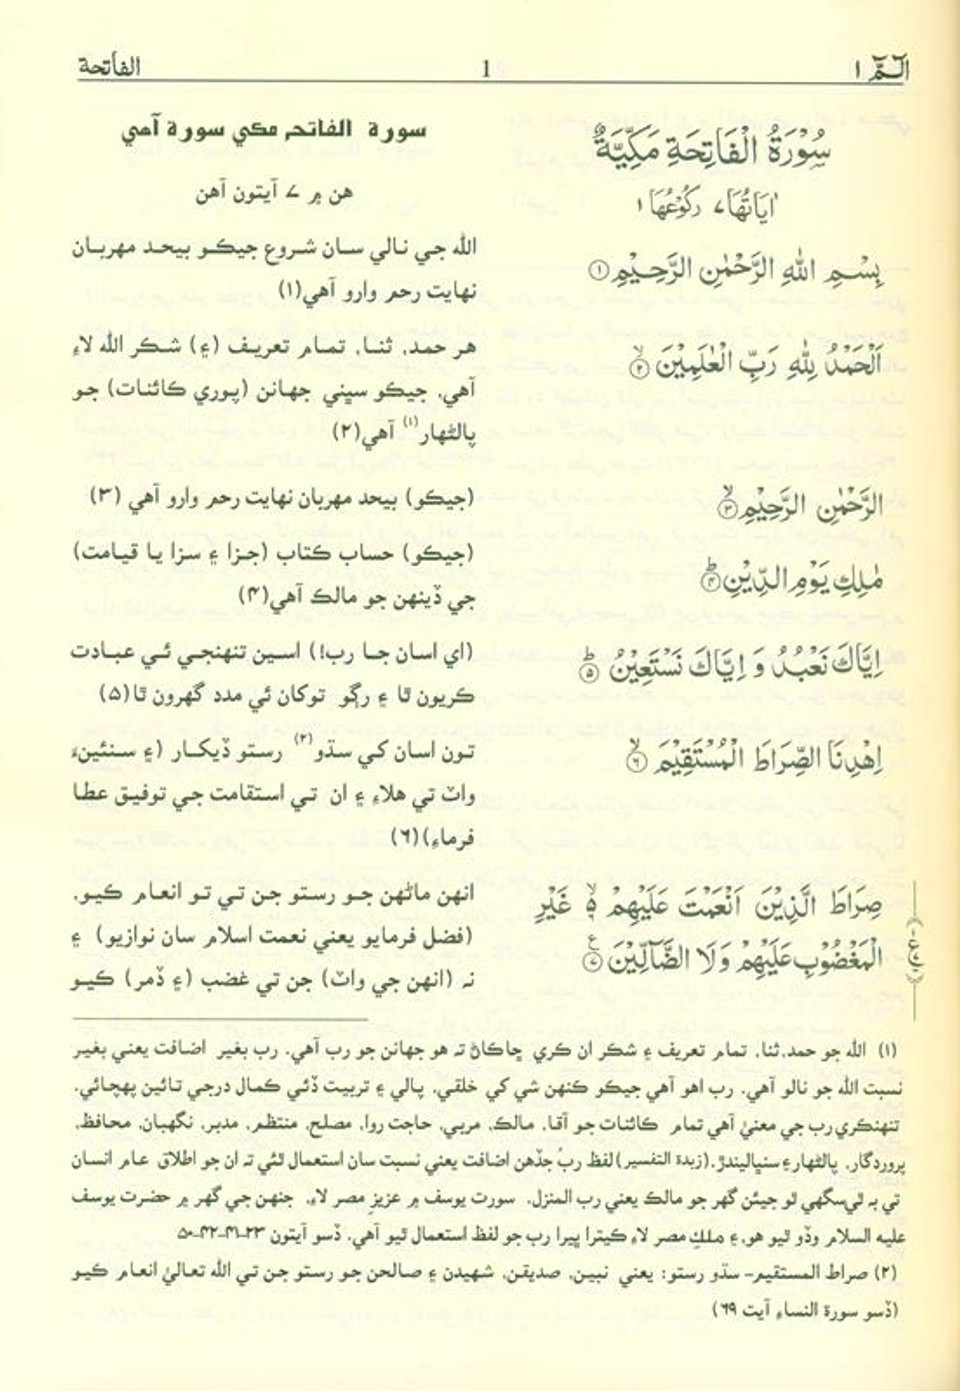 الٓمّٓ ١
1
الفاتحة
سُوْرَةُ الْفَاتِحَةِ مَكِّيَّةٌ
اٰيَاتُهَا ٧ رُكُوْعُهَا ١
بِسْمِ اللهِ الرَّحْمٰنِ الرَّحِيْمِ ①
اَلْحَمْدُ لِلّٰهِ رَبِّ الْعٰلَمِيْنَ ۙ②
الرَّحْمٰنِ الرَّحِيْمِ ۙ③
مٰلِكِ يَوْمِ الدِّيْنِ ؕ④
اِيَّاكَ نَعْبُدُ وَ اِيَّاكَ نَسْتَعِيْنُ ؕ⑤
اِهْدِنَا الصِّرَاطَ الْمُسْتَقِيْمَ ۙ⑥
صِرَاطَ الَّذِيْنَ اَنْعَمْتَ عَلَيْهِمْ ۙ۬ غَيْرِ
الْمَغْضُوْبِ عَلَيْهِمْ وَلَا الضَّآلِّيْنَ ۧ⑦
سورة الفاتحہ مڪي سورة آهي
هن ۾ ٧ آيتون آهن
الله جي نالي سان شروع جيڪو بيحد مهربان
نهايت رحم وارو آهي(١)
هر حمد، ثنا، تمام تعريف (۽) شڪر الله لاءِ
آهي، جيڪو سڀني جهانن (پوري ڪائنات) جو
پالڻهار(١) آهي(٢)
(جيڪو) بيحد مهربان نهايت رحم وارو آهي (٣)
(جيڪو) حساب ڪتاب (جزا ۽ سزا يا قيامت)
جي ڏينهن جو مالڪ آهي(۴)
(اي اسان جا رب!) اسين تنهنجي ئي عبادت
ڪريون ٿا ۽ رڳو توکان ئي مدد گهرون ٿا(۵)
تون اسان کي سڌو(٢) رستو ڏيکار (۽ سنئين
واٽ تي هلاءِ ۽ ان تي استقامت جي توفيق عطا
فرماءِ)(٦)
انهن ماڻهن جو رستو جن تي تو انعام ڪيو،
(فضل فرمايو يعني نعمت اسلام سان نوازيو) ۽
نہ (انهن جي واٽ) جن تي غضب (۽ ڏمر) ڪيو
(١) الله جو حمد،ثنا، تمام تعريف ۽ شڪر ان ڪري ڇاڪاڻ تہ هو جهانن جو رب آهي، رب بغير اضافت يعني بغير
نسبت الله جو نالو آهي، رب اهو آهي جيڪو ڪنهن شي کي خلقي، پالي ۽ تربيت ڏئي ڪمال درجي تائين پهچائي،
تنهنڪري رب جي معنيٰ آهي تمام ڪائنات جو آقا، مالڪ، مربي، حاجت روا، مصلح، منتظم، مدبر، نگهبان، محافظ،
پروردگار، پالڻهار۽ سنڀاليندڙ.(زبدة التفسير) لفظ ربُ جڏهن اضافت يعني نسبت سان استعمال ٿئي تہ ان جو اطلاق عام انسان
تي بہ ٿي سگهي ٿو جيئن گهر جو مالڪ يعني رب المنزل، سورت يوسف ۾ عزيزِ مصر لاءِ جنهن جي گهر ۾ حضرت يوسف
عليه السلام وڏو ٿيو هو،۽ ملڪِ مصر لاءِ ڪيترا ڀيرا رب جو لفظ استعمال ٿيو آهي، ڏسو آيتون ٢٣-٤١-٤٢-٥٠
(٢) صراط المستقيم- سڌو رستو: يعني نبين، صديقن، شهيدن ۽ صالحن جو رستو جن تي الله تعاليٰ انعام ڪيو
(ڏسو سورة النساءِ آيت ٦٩)